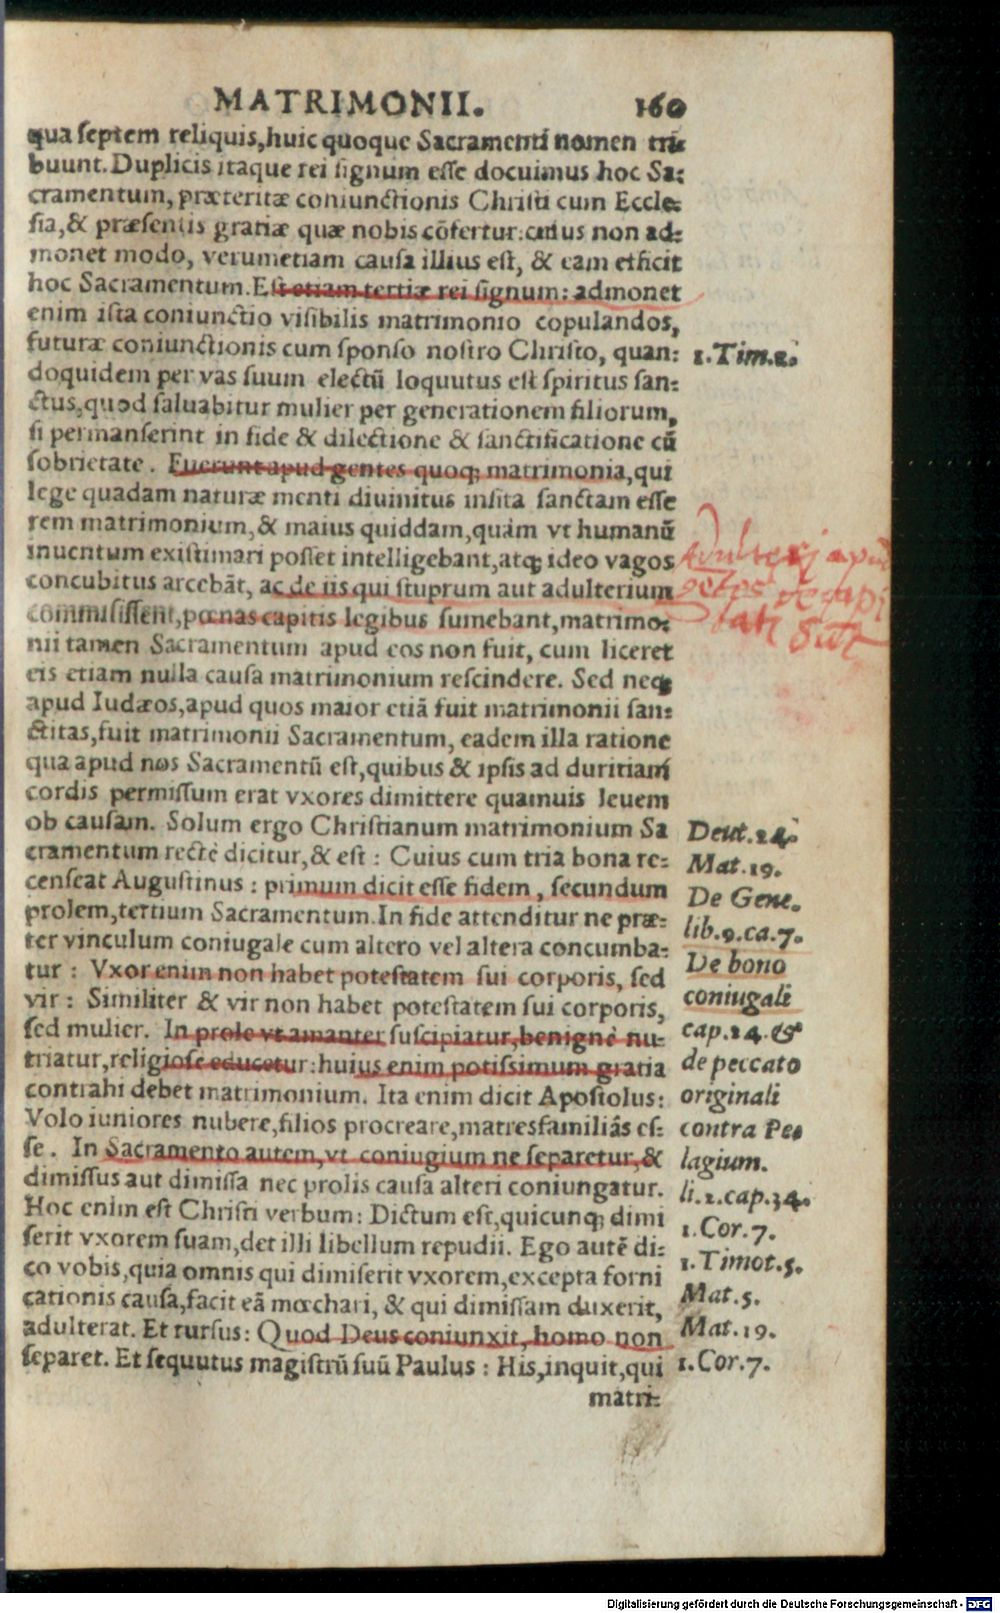 MATRIMONII. 160
qua septem reliquis, huic quoque Sacramenti nomen tri-
buunt. Duplicis itaque rei signum esse docuimus hoc Sa-
cramentum, præteritæ coniunctionis Christi cum Eccle-
sia, & præsentis gratiæ quæ nobis cõfertur: cuius non ad-
monet modo, verumetiam causa illius est, & eam efficit
hoc Sacramentum. Est etiam tertiæ rei signum: admonet
enim ista coniunctio visibilis matrimonio copulandos,
futuræ coniunctionis cum sponso nostro Christo, quan-
1. Tim. 2.
doquidem per vas suum electũ loquutus est spiritus san-
ctus, quod saluabitur mulier per generationem filiorum,
si permanserint in fide & dilectione & sanctificatione cũ
sobrietate. Fuerunt apud gentes quoq; matrimonia, qui
lege quadam naturæ menti diuinitus insita sanctam esse
rem matrimonium, & maius quiddam, quàm vt humanũ
inuentum existimari posset intelligebant, atq; ideo vagos
concubitus arcebãt, ac de iis qui stuprum aut adulterium
commisissent, pœnas capitis legibus sumebant, matrimo-
Adulterj apud
nii tamen Sacramentum apud eos non fuit, cum liceret
eis etiam nulla causa matrimonium rescindere. Sed neq;
apud Iudæos, apud quos maior etiã fuit matrimonii san-
ctitas, fuit matrimonii Sacramentum, eadem illa ratione
qua apud nos Sacramentũ est, quibus & ipsis ad duritiam
cordis permissum erat vxores dimittere quamuis leuem
ob causam. Solum ergo Christianum matrimonium Sa
cramentum rectè dicitur, & est: Cuius cum tria bona re-
censeat Augustinus: primum dicit esse fidem, secundum
prolem, tertium Sacramentum. In fide attenditur ne præ-
ter vinculum coniugale cum altero vel altera concumba-
tur: Vxor enim non habet potestatem sui corporis, sed
vir: Similiter & vir non habet potestatem sui corporis,
sed mulier. In prole vt amanter suscipiatur, benignè nu-
triatur, religiosè educetur: huius enim potissimum gratia
contrahi debet matrimonium. Ita enim dicit Apostolus:
Volo iuniores nubere, filios procreare, matresfamiliâs es-
se. In Sacramento autem, vt coniugium ne separetur, &
dimissus aut dimissa nec prolis causa alteri coniungatur.
Hoc enim est Christi verbum: Dictum est, quicunq; dimi
serit vxorem suam, det illi libellum repudii. Ego autẽ di-
co vobis, quia omnis qui dimiserit vxorem, excepta forni
cationis causa, facit eã mœchari, & qui dimissam duxerit,
adulterat. Et rursus: Quod Deus coniunxit, homo non
separet. Et sequutus magistrũ suũ Paulus: His, inquit, qui
matri-
Deut. 24.
Mat. 19.
De Gene.
lib. 9. ca. 7.
De bono
coniugali
cap. 24. &
de peccato
originali
contra Pe-
lagium.
li. 2. cap. 34.
1. Cor. 7.
1. Timot. 5.
Mat. 5.
Mat. 19.
1. Cor. 7.
Digitalisierung gefördert durch die Deutsche Forschungsgemeinschaft - DFG